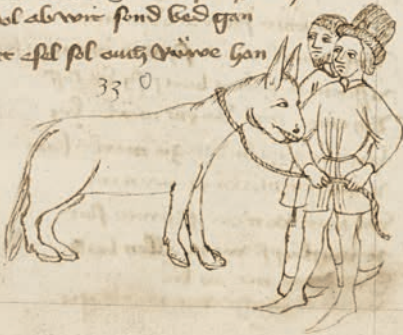 ol ab wir sond bed gan
esel sol euch Vöwe han
33 0